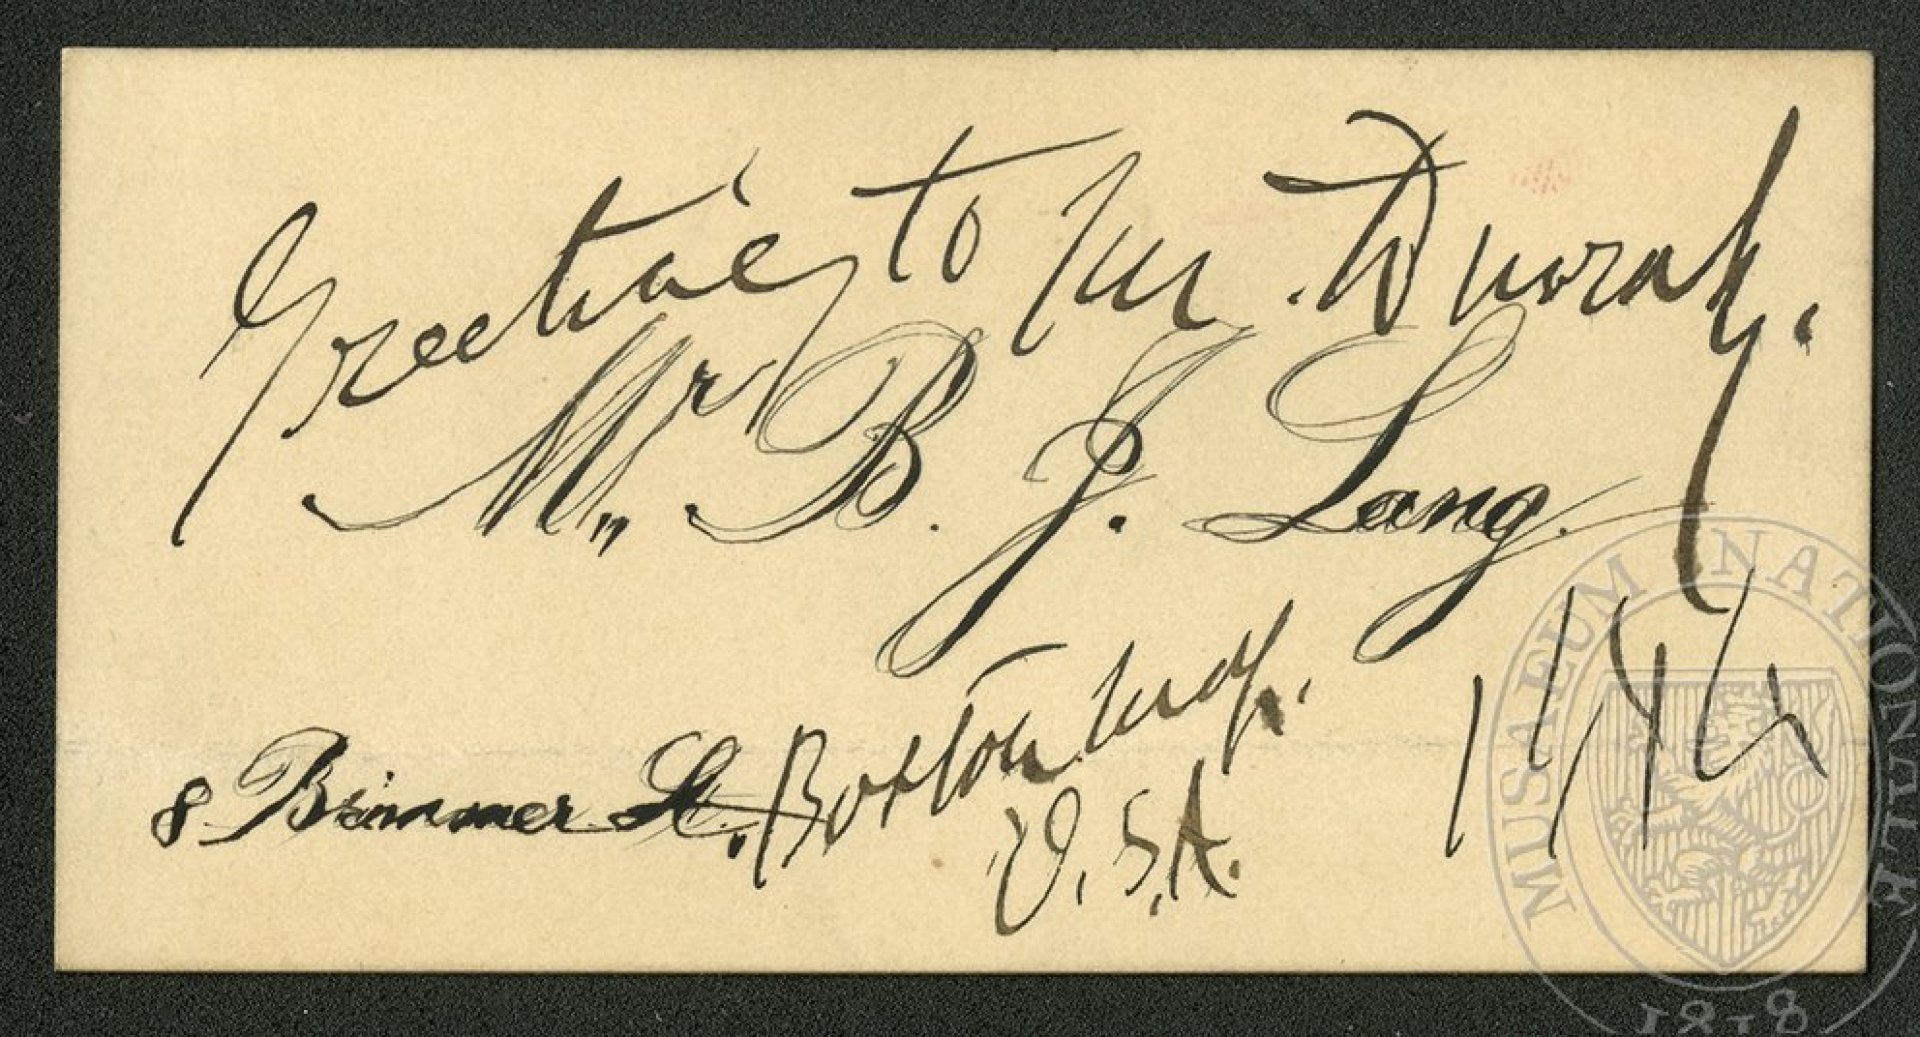 Greeting to Mr. Dvorak.
Mr. B. J. Lang.
8 Brimmer St., Boston Mass.
U.S.A.
MUSAEUM NATIONALE
1818